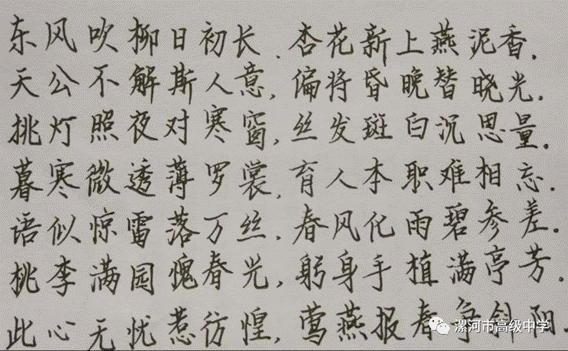 东风吹柳日初长、杏花新上燕泥香.
天公不解斯人意,偏将昏晚替晓光.
挑灯照夜对寒窗,丝发斑白沉思量.
暮寒微透薄罗裳,育人本职难相忘.
语似惊雷落万丝.春风化雨碧参差.
桃李满园愧春光,躬身手植满亭芳.
此心无忧惹彷惶,莺燕报春争斜阳.
漯河市高级中学